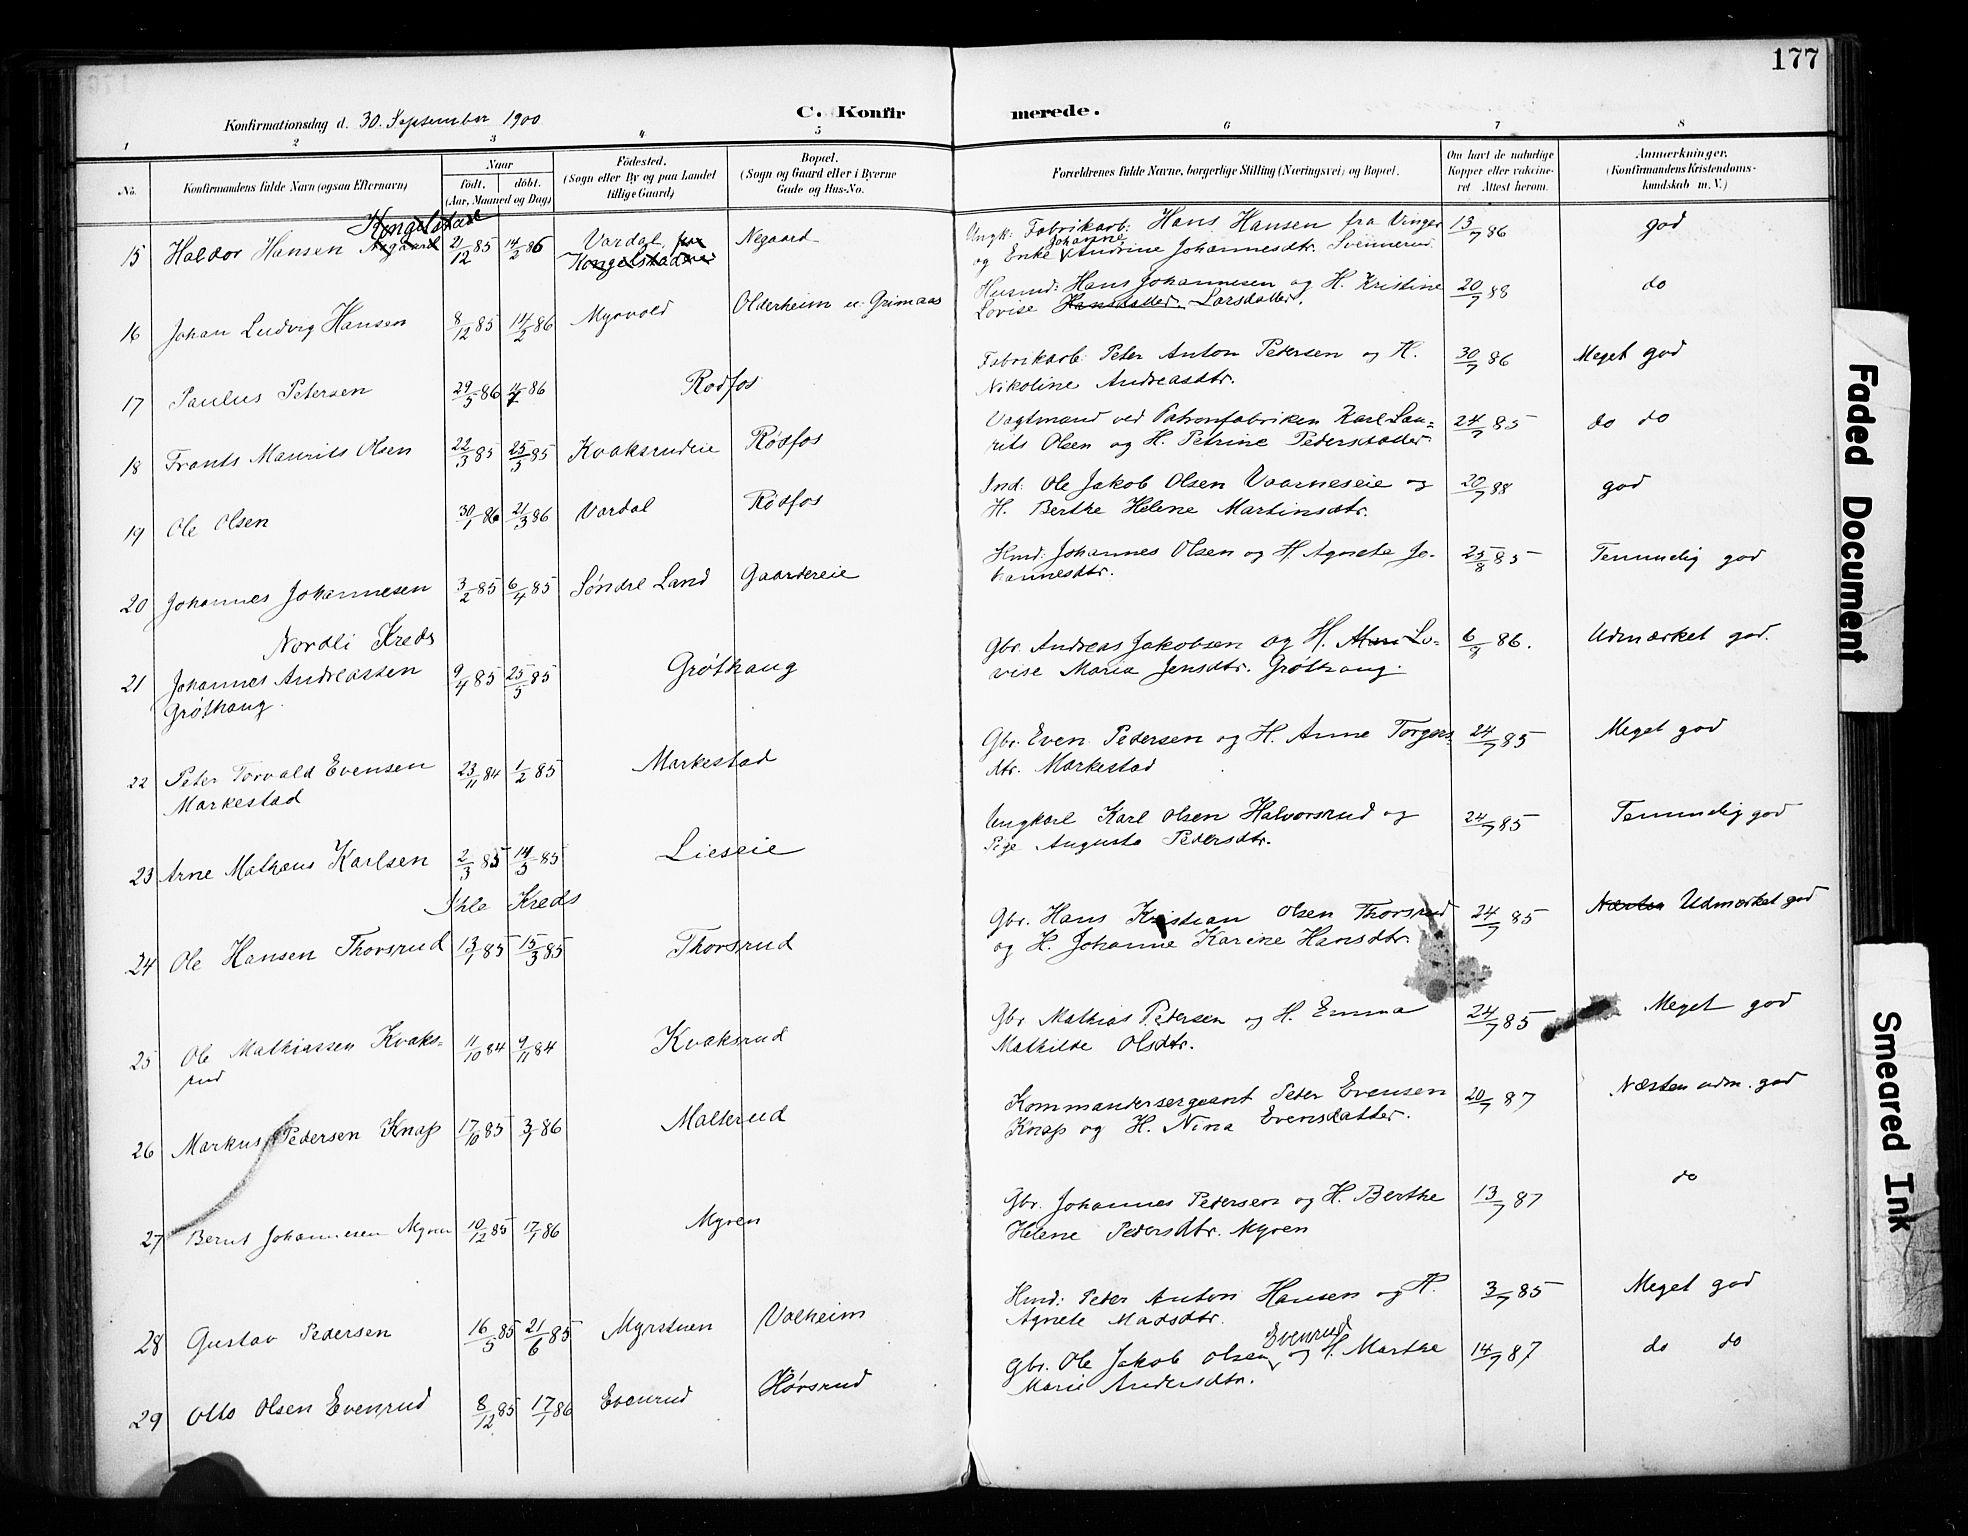 177
Konfirmationsdag d. 30. September 1900
C. Konfirmerede.
1 2 3 4 5 6 7 8
No.
Konfirmandens fulde Navn (ogsaa Efternavn)
Naar
født. døbt.
(Aar, Maaned og Dag)
Fødested.
(Sogn eller By og paa Landet
tillige Gaard)
Bopæl.
(Sogn og Gaard eller i Byerne
Gade og Hus-No.
Forældrenes fulde Navne, borgerlige Stilling (Næringsvei) og Bopæl.
Om havt de naturlige
Kopper eller vakcine-
ret Attest herom.
Anmærkninger.
(Konfirmandens Kristendoms-
kundskab m. V.)
Kongelstad
15 Haldor Hansen Negaard 21/12 85 14/2 86 Vardal, Kongelstadeie Negaard
Ungk: Fabrikarb: Hans Hansen fra Vinger 13/7 86 god
og Enke Johanne Andrine Johannesdtr. Svennerud.
16 Johan Ludvig Hansen 8/12 85 14/2 86 Myrvold Olderheim u. Grimaas
Husmd: Hans Johannesen og H. Kristine 20/7 88 do
Lovise Hansdatter Larsdatter.
17 Paulus Petersen 29/5 86 4/7 86 Rodfos
Fabrikarb: Peter Anton Petersen og H. 30/7 86 Meget god
Nikoline Andreasdtr.
18 Frants Maurits Olsen 22/3 85 25/5 85 Kvaksrudeie Rødfos
Vagtmand ved Patronfabriken Karl Lau= 24/7 85 do do
rits Olsen og H. Petrine Pedersdatter
19 Ole Olsen 30/1 86 21/3 86 Vardal Rødfos
Ind: Ole Jakob Olsen Vaarneseie og 20/7 88 god
H. Berthe Helene Martinsdtr.
20 Johannes Johannesen 3/2 85 6/4 85 Søndre Land Gaardereie
Hmd: Johannes Olsen og H. Agnete Jo- 25/8 85 Temmelig god
hannesdtr.
Nordli Kreds
21 Johannes Andreassen 9/4 85 25/5 85 Grøthaug
Grøthaug.
Gbr. Andreas Jakobsen og H. Lo= 6/8 86. Udmærket god.
vise Maria Jensdtr. Grøthaug.
22 Peter Torvald Evensen 23/11 84 1/2 85 Markestad
Markestad
Gbr. Even Pedersen og H. Anne Torgers= 24/7 85 Meget god
dtr. Markestad
23 Arne Mathæus Karlsen 2/3 85 14/5 85 Lieseie
Ungkarl Karl Olsen Halvorsrud og 24/7 85 Temmelig god
Pige Augusta Pedersdtr.
Ihle Kreds
24 Ole Hansen Thorsrud 13/1 85 15/3 85 Thorsrud
Gbr. Hans Kristian Olsen Thorsrud 24/7 85 Næsten Udmærket god
og H. Johanne Karine Hansdtr.
25 Ole Mathiassen Kvaks= 11/10 84 9/11 84 Kvaksrud
rud
Gbr Mathias Petersen og H. Emma 24/7 85 Meget god
Mathilde Olsdtr.
26 Markus Pedersen Knap 17/10 85 3/1 86 Malterud
Kommandersergeant Peter Evensen 20/7 87 Næsten udm. god
Knap og H. Nina Evensdatter.
27 Bernt Johannesen Myren 10/12 85 17/1 86 Myren
Gbr. Johannes Petersen og H. Berthe 13/7 87 do
Helene Pedersdtr. Myren
28 Gustav Pedersen 16/5 85 21/6 85 Myrstuen Valheim
Hmd: Peter Anton Hansen og H. 3/7 85 Meget god
Agnete Madsdtr.
29 Otto Olsen Evenrud 8/12 85 17/1 86 Evenrud Hørsrud
Gbr. Ole Jakob Olsen Evenrud og H. Marthe 14/7 87 do do
Marie Andersdtr.
Faded Document
Smeared Ink